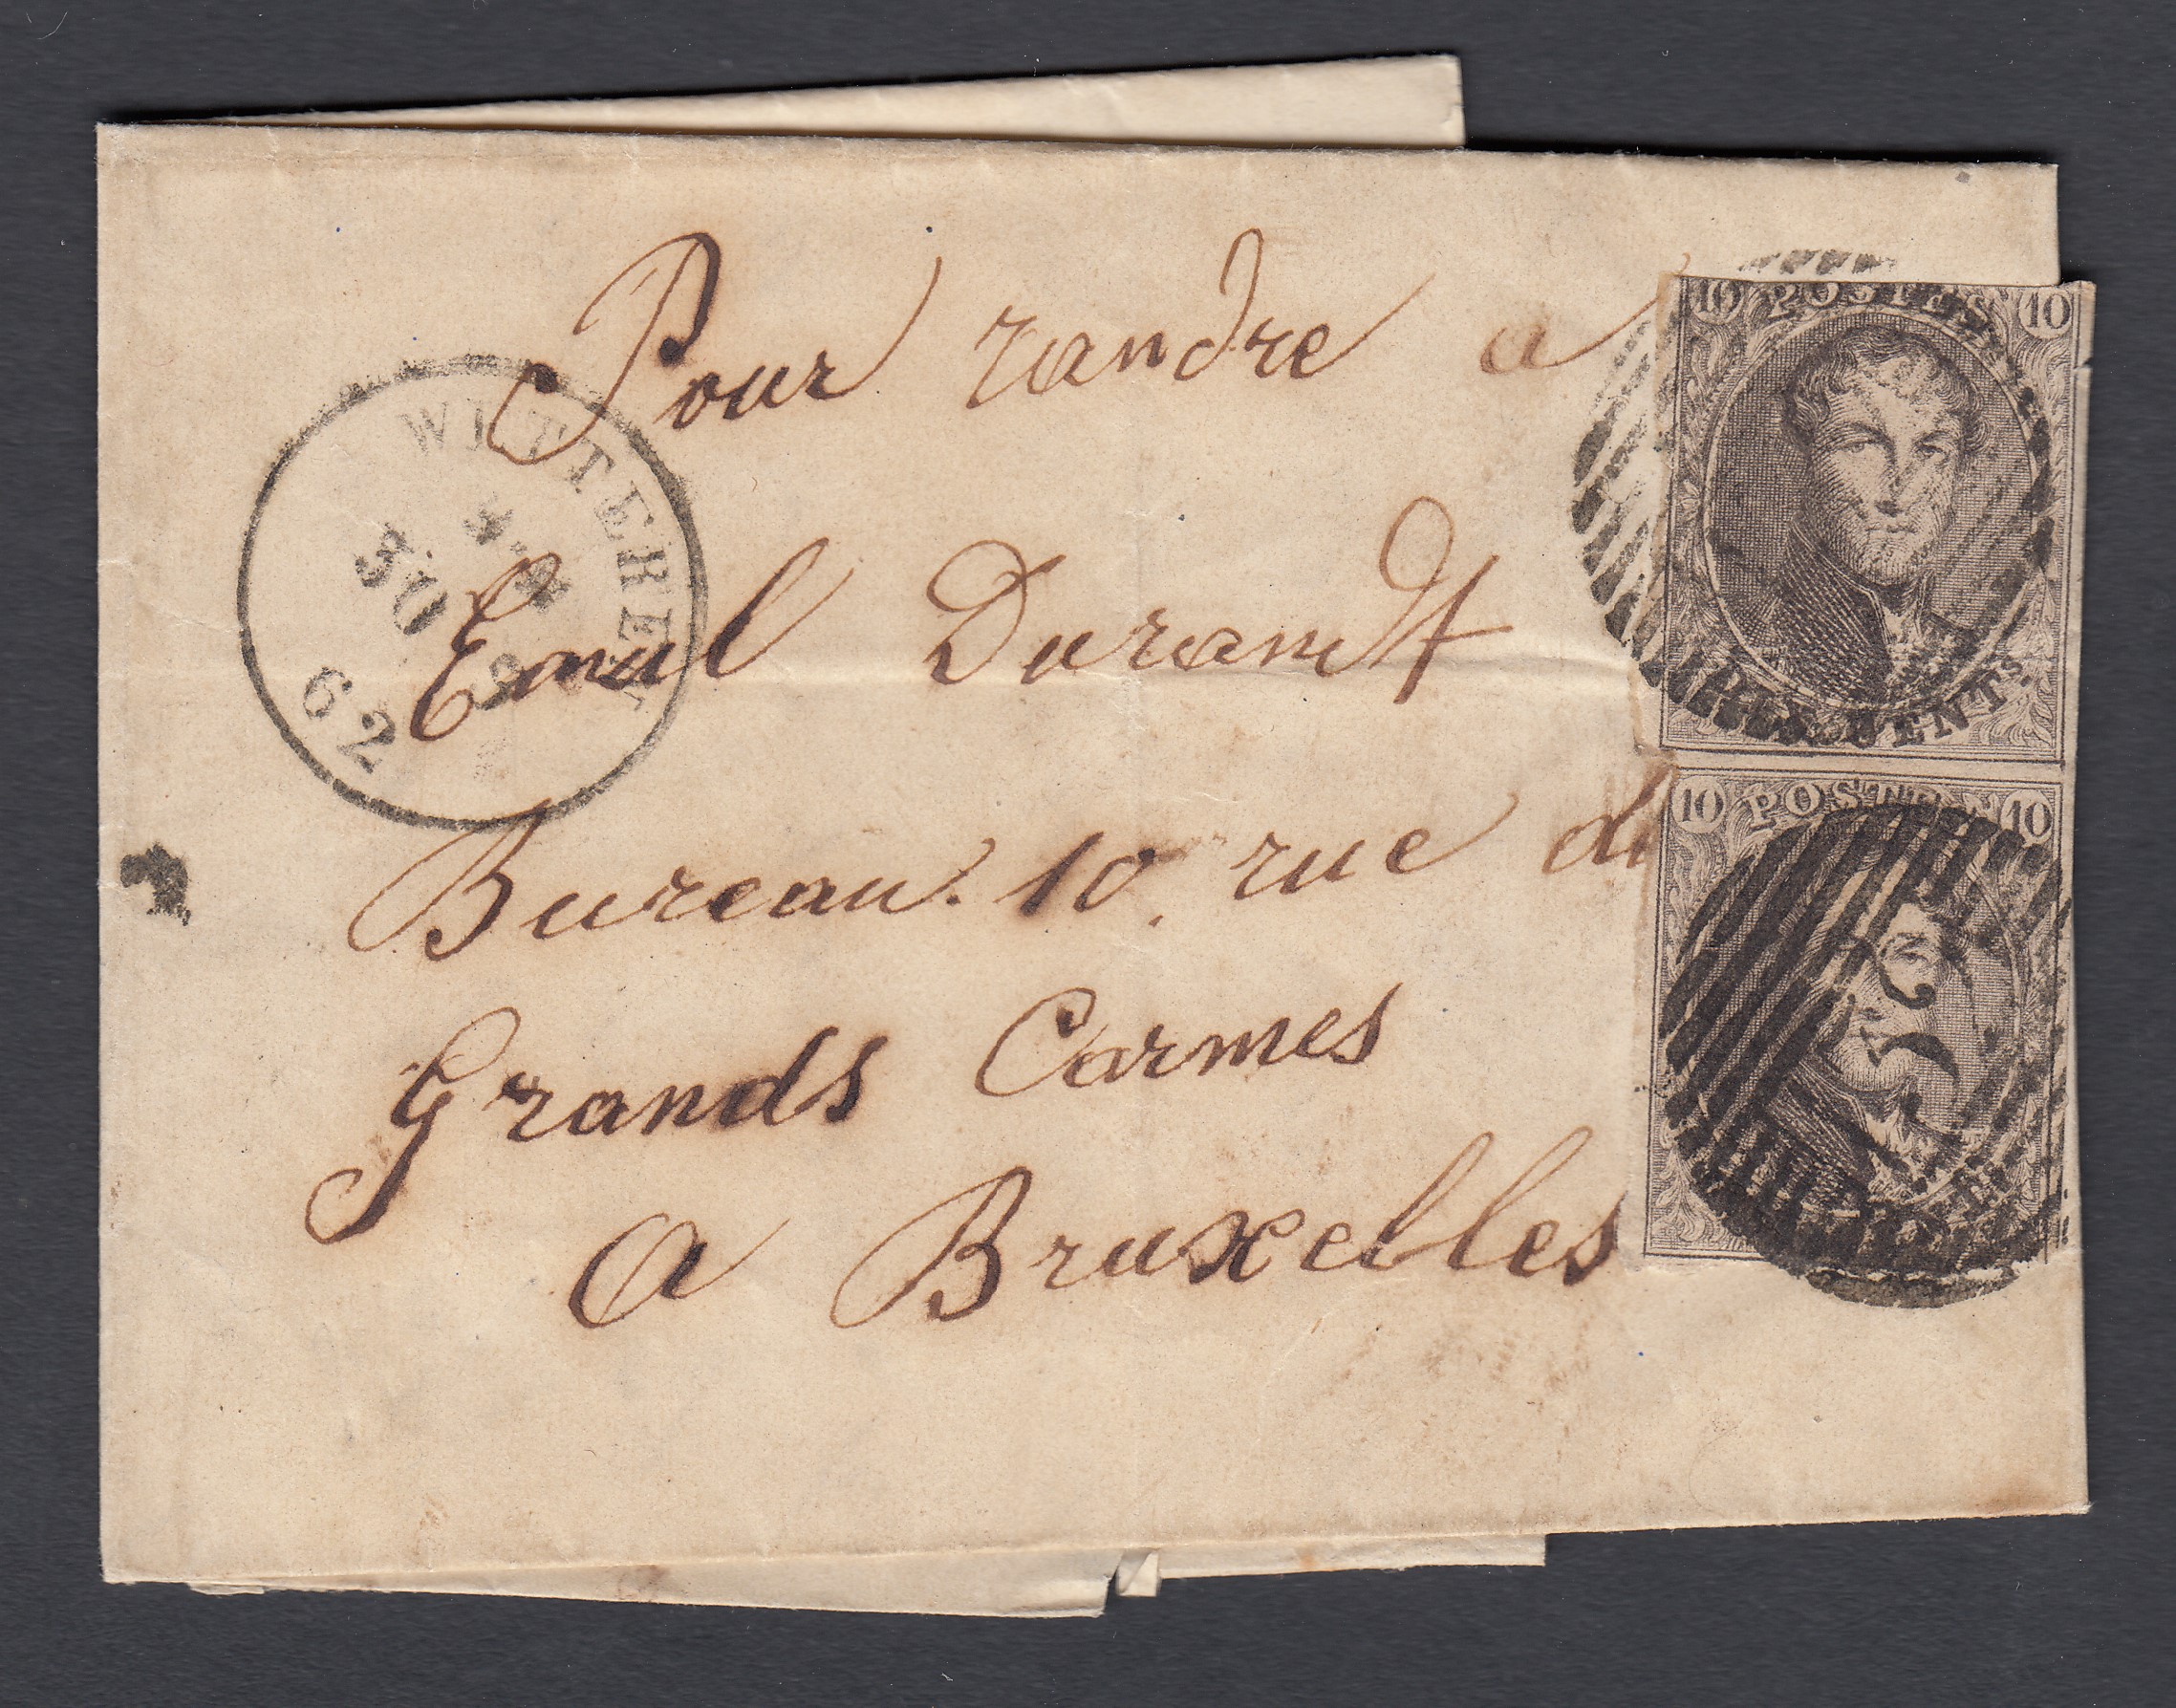 Pour randre a
Emil Durandt
Bureau. 10. rue de
Grands Carmes
A Bruxelles
WITTEREN
30
62
10 POSTES 10
CENTS.
10 POSTES 10